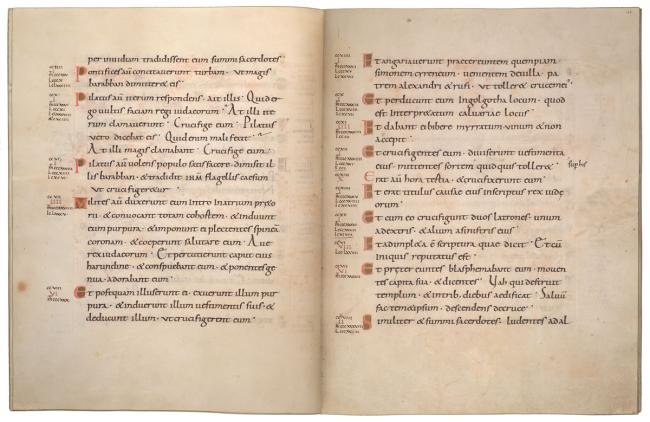 per inuidiam tradidissent eum summi sacerdotes
Pontifices aū concitauerunt turbam · Ut magis
barabban dimitteret eis ·
Pilatus aū iterum respondens · Ait illis · Quid er
go uultis faciam regi iudaeorum · At illi ite
rum clamauerunt · Crucifige eum · Pilatus
uero dicebat eis · Quid enim mali fecit ·
At illi magis clamabant · Crucifige eum ·
Pilatus aū uolens populo satisfacere · dimisit il
lis barabban · & tradidit ihm flagellis caesum
Ut crucifigeretur ·
Milites aū duxerunt eum intro in atrium præto
rii · & conuocant totam cohortem · & induunt
eum purpura · & imponunt ei plectentes spineā
coronam · & coeperunt salutare eum · Aue
rex iudaeorum · Et percutiebant caput eius
harundine · & conspuebant eum · & ponentes ge
nua · adorabant eum ·
Et postquam illuserunt ei · exuerunt illum pur
pura · & induerunt illum uestimentis suis · &
deducunt illum · Ut crucifigerent eum ·
Et angariauerunt praetereuntem quempiam ·
simonem cyreneum · uenientem de uilla · pa
trem alexandri & rufi · ut tolleret crucem ei'
Et perducunt eum in golgotha locum · quod
est interpretatum caluariae locus ·
Et dabant ei bibere myrratum uinum & non
accepit ·
Et crucifigentes eum · diuiserunt uestimenta
eius · mittentes sortem quid quis tolleret ·
sup his
Erat aū hora tertia · & crucifixerunt eum ·
Et erat titulus causae eius inscriptus rex iudę
orum ·
Et cum eo crucifigunt duos latrones · unum
a dextris · & alium a sinistris eius ·
Et adimpleta ē scriptura quae dicit · Et cū
iniquis reputatus est ·
Et prętereuntes blasphemabant eum · mouen
tes capita sua · & dicentes · Vah qui destruit
templum · & in trib; diebus aedificat · Saluū
fac temetipsum · descendens de cruce ·
Similiter & summi sacerdotes · ludentes ad al